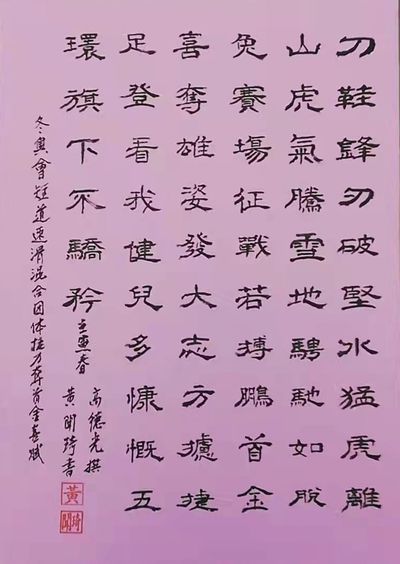 刀鞋鋒刃破堅氷猛虎離
山虎氣騰雪地騁馳如脫
兔賽場征戰若搏鵬首金
喜奪雄姿發大志方攄捷
足登看我健兒多慷慨五
環旗下不驕矜 壬寅春
高德光撰
黃聞琦書
冬奧會短道速滑混合团体接力奪首金喜賦
黃
聞琦